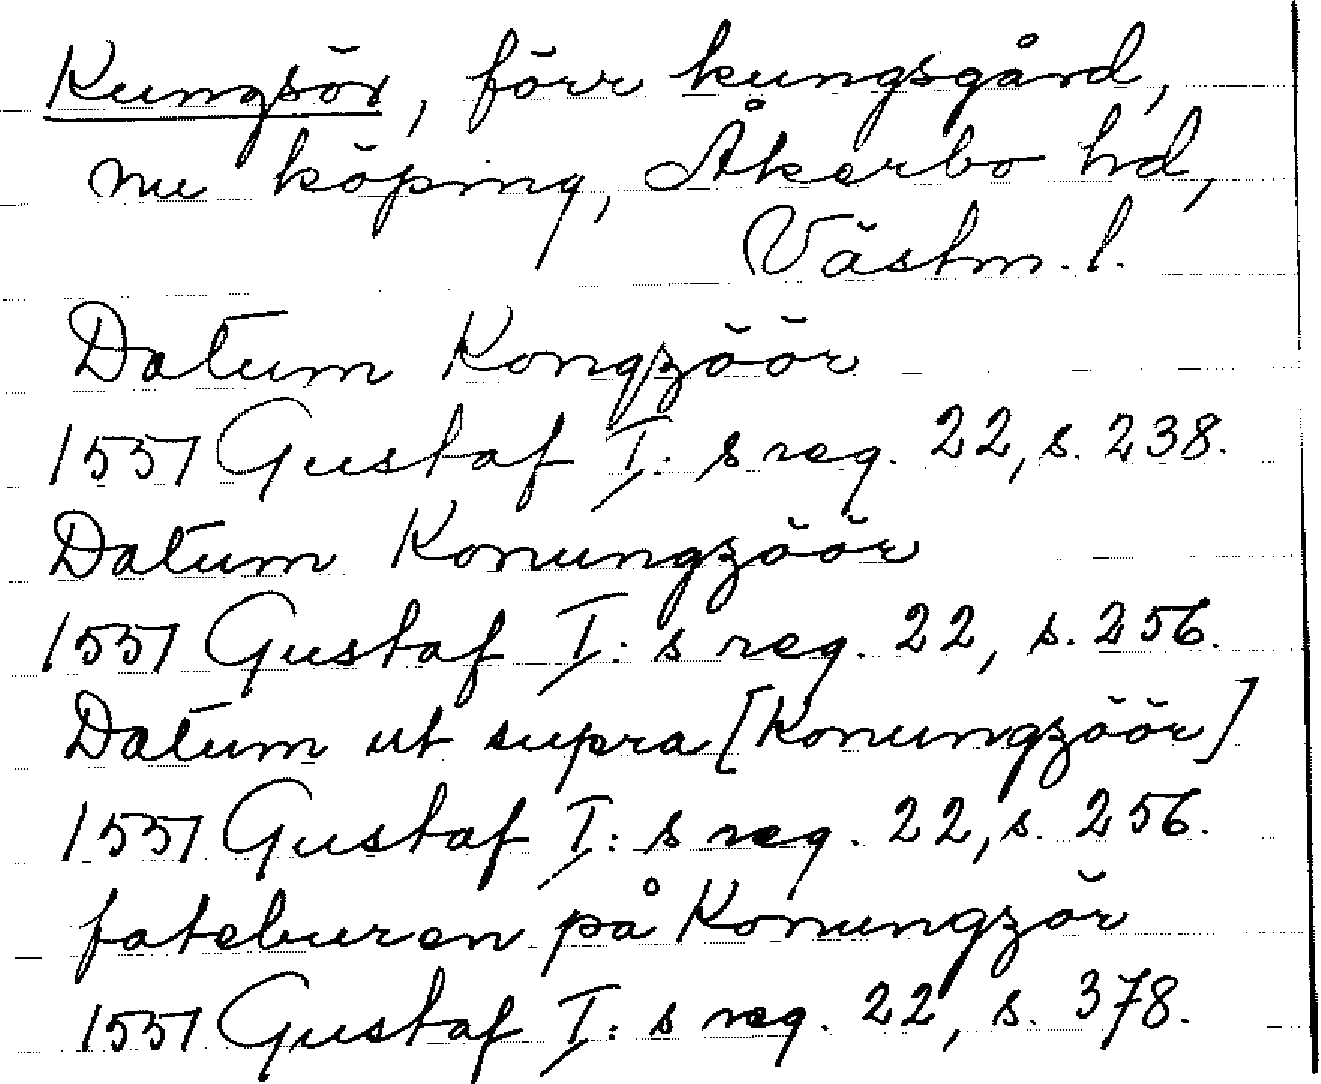 Kungsör, förr kungsgård,
nu köping, Åkerbo hd,
Västm. l.
Datum Kongzöör
1551 Gustaf I: s reg. 22, s. 238.
Datum Konungzöör
1551 Gustaf I: s reg. 22, s. 256.
Datum ut supra [Konungzöör]
1551 Gustaf I: s reg. 22, s. 256.
fateburen på Konungzör
1551 Gustaf I: s reg. 22, s. 378.